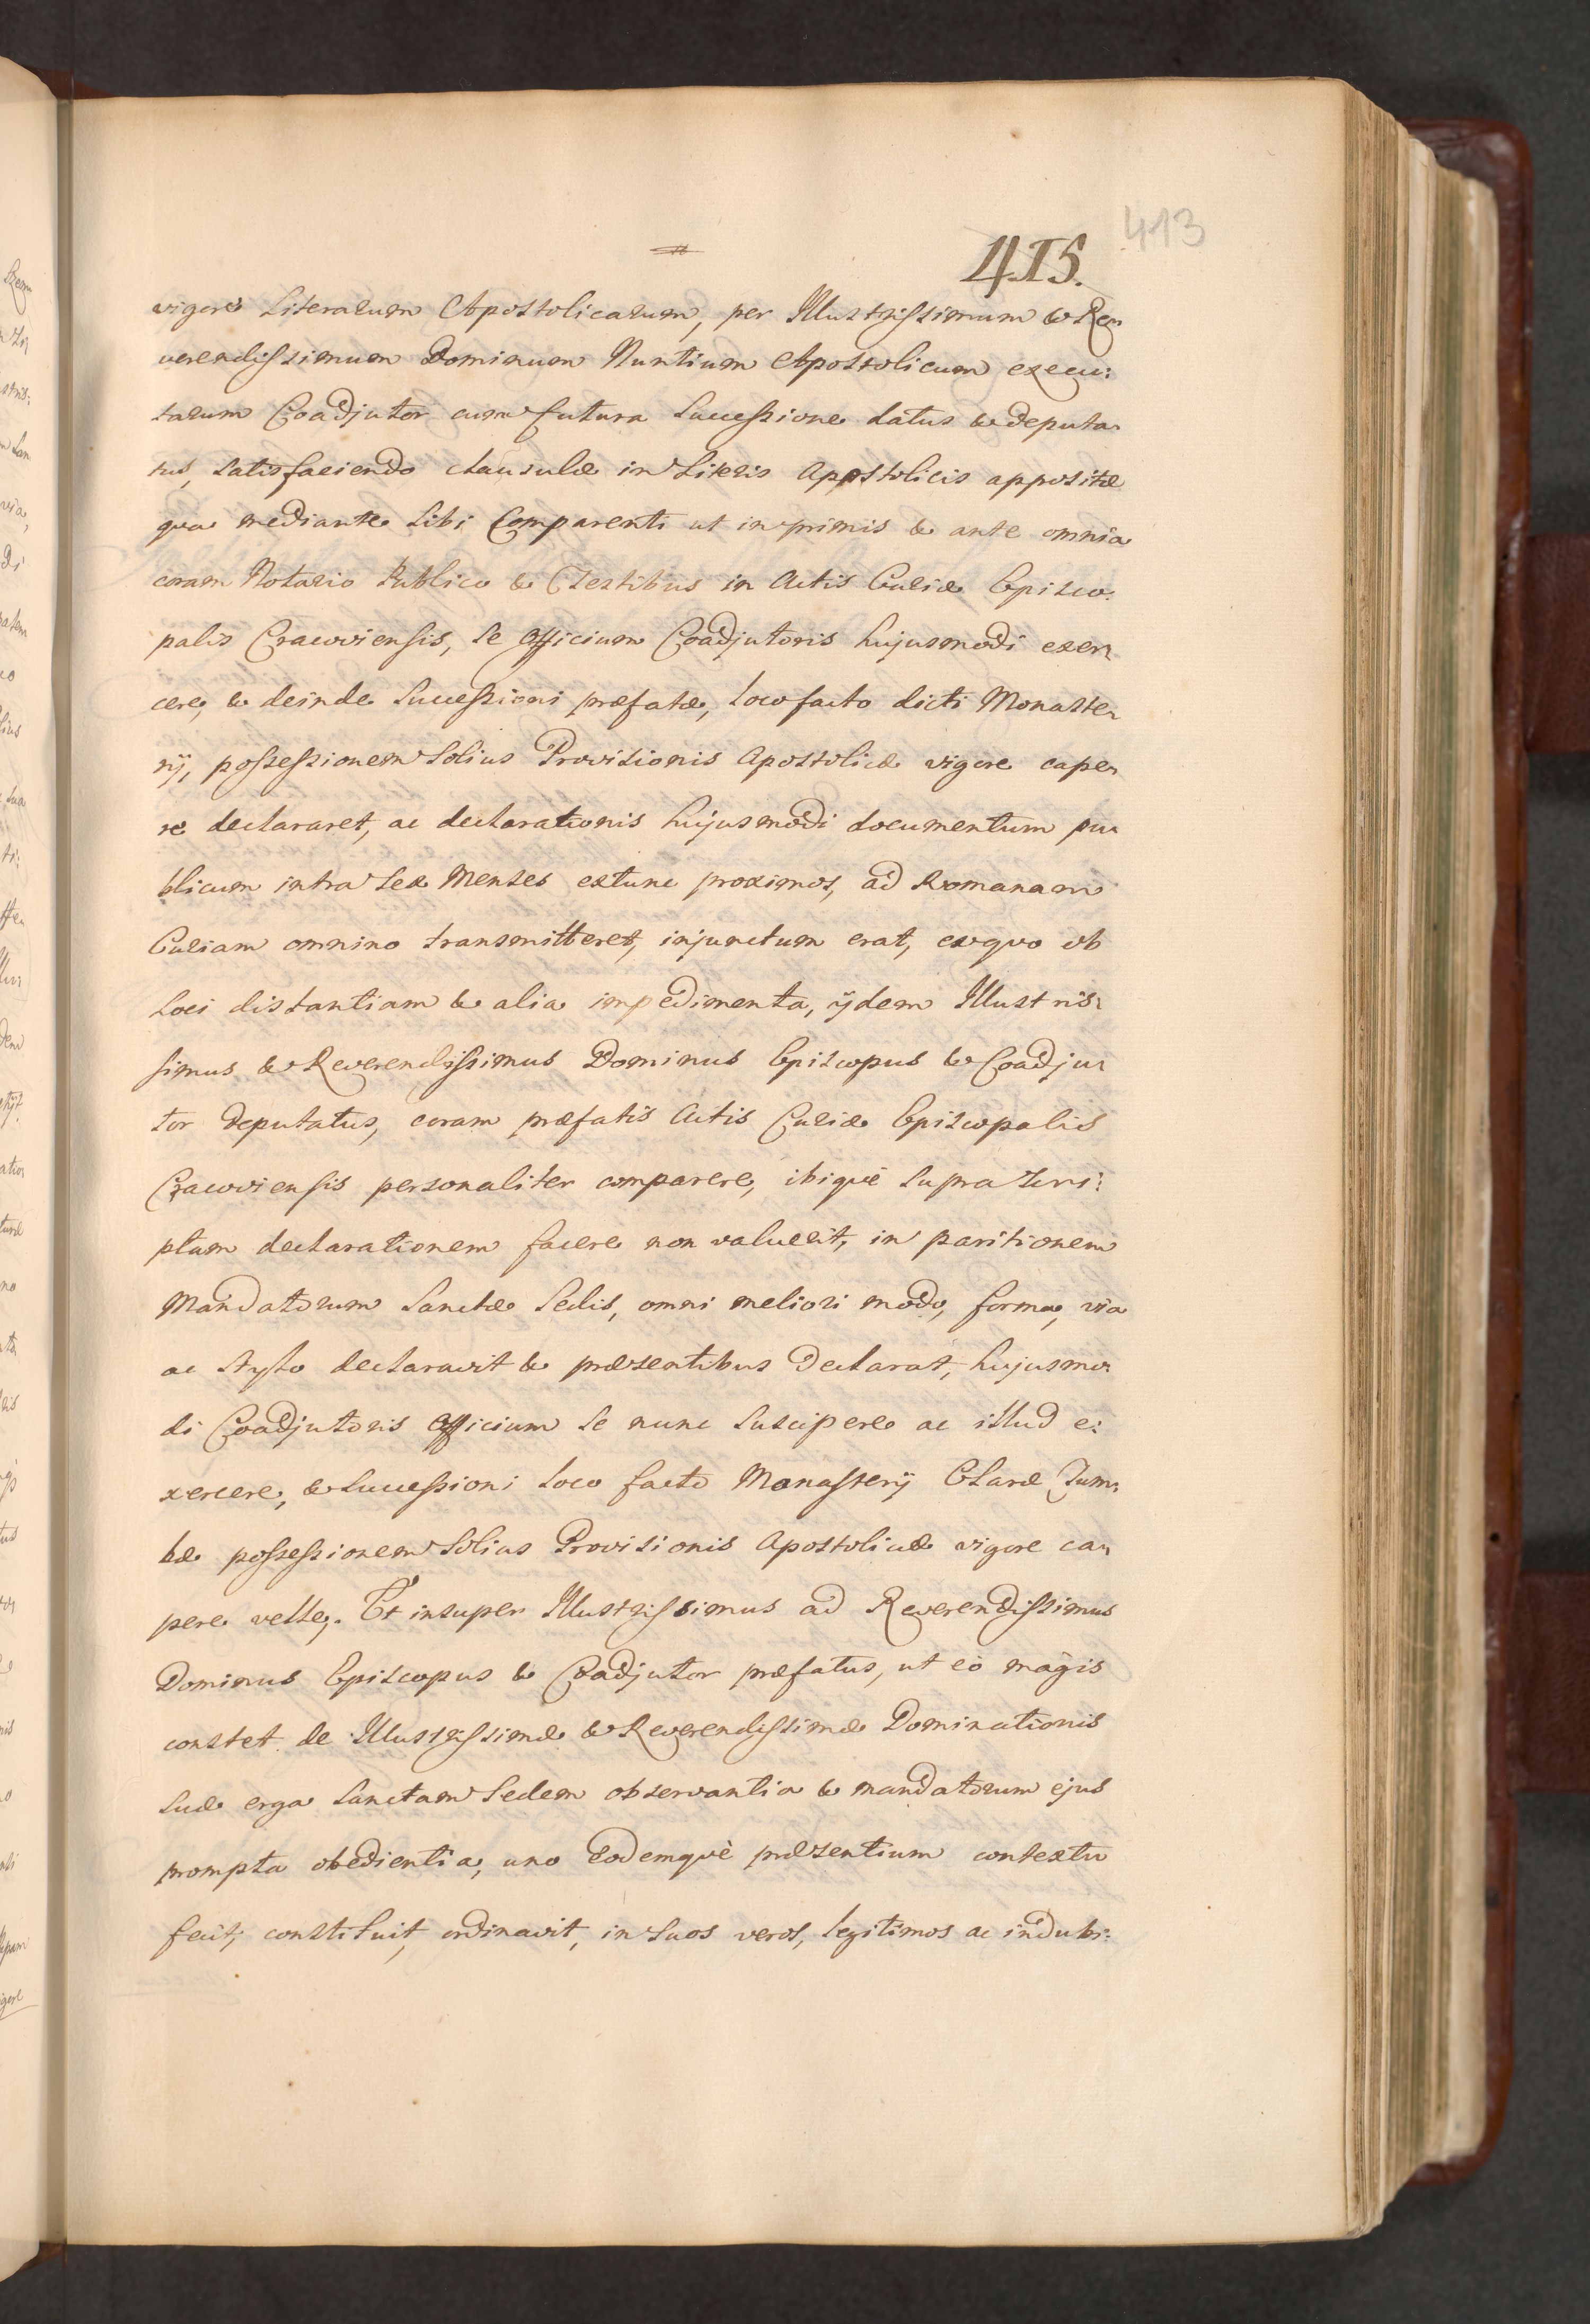 413
415.
vigore Literarum Apostolicarum, per Illustrissimum & Re-
verendissimum Dominum Nuntium Apostolicum execu:
tarum Coadjutor cum futura Successione datus & deputa-
tus, Satisfaciendo clausulæ in Literis Apostolicis appositæ
qua mediante Sibi Comparenti ut in primis & ante omnia
coram Notario Publico & Testibus in Actis Curiæ Episco:
palis Cracoviensis, Se Officium Coadjutoris hujusmodi exer-
cere, & deinde Successioni præfatæ, loco facto dicti Monaste-
rij, possessionem Solius Provisionis Apostolicæ vigore cape-
re declararet, ac declarationis hujusmodi documentum pu-
blicum intra Sex Menses extunc proximos, ad Romanam
Curiam omnino transmitteret, injunctum erat, exquo ob
Loci distantiam & alia impedimenta, ijdem Illustris-
simus & Reverendissimus Dominus Episcopus & Coadju-
tor deputatus, coram præfatis Actis Curiæ Episcopalis
Cracoviensis personaliter comparere, ibique Suprascri:
ptam declarationem facere non valuerit, in paritionem
Mandatorum Sanctæ Sedis, omni meliori modo, forma, via
ac Stylo declaravit & præsentibus declarat, hujusmo-
di Coadjutoris Officium Se nunc Suscipere ac illud e:
xercere, & Successioni loco facto Monasterij Claræ Tum-
bæ possessionem Solius Provisionis Apostolicæ vigore ca-
pere velle. Et insuper Illustrissimus ad Reverendissimus
Dominus Episcopus & Coadjutor præfatus, ut eò magis
constet de Illustrissimæ & Reverendissimæ Dominationis
Suæ erga Sanctam Sedem observantia & mandatorum ejus
prompta obedientia, uno Eodemquè præsentium contextu
fecit, constituit, ordinavit, in Suos veros, legitimos ac indubi: